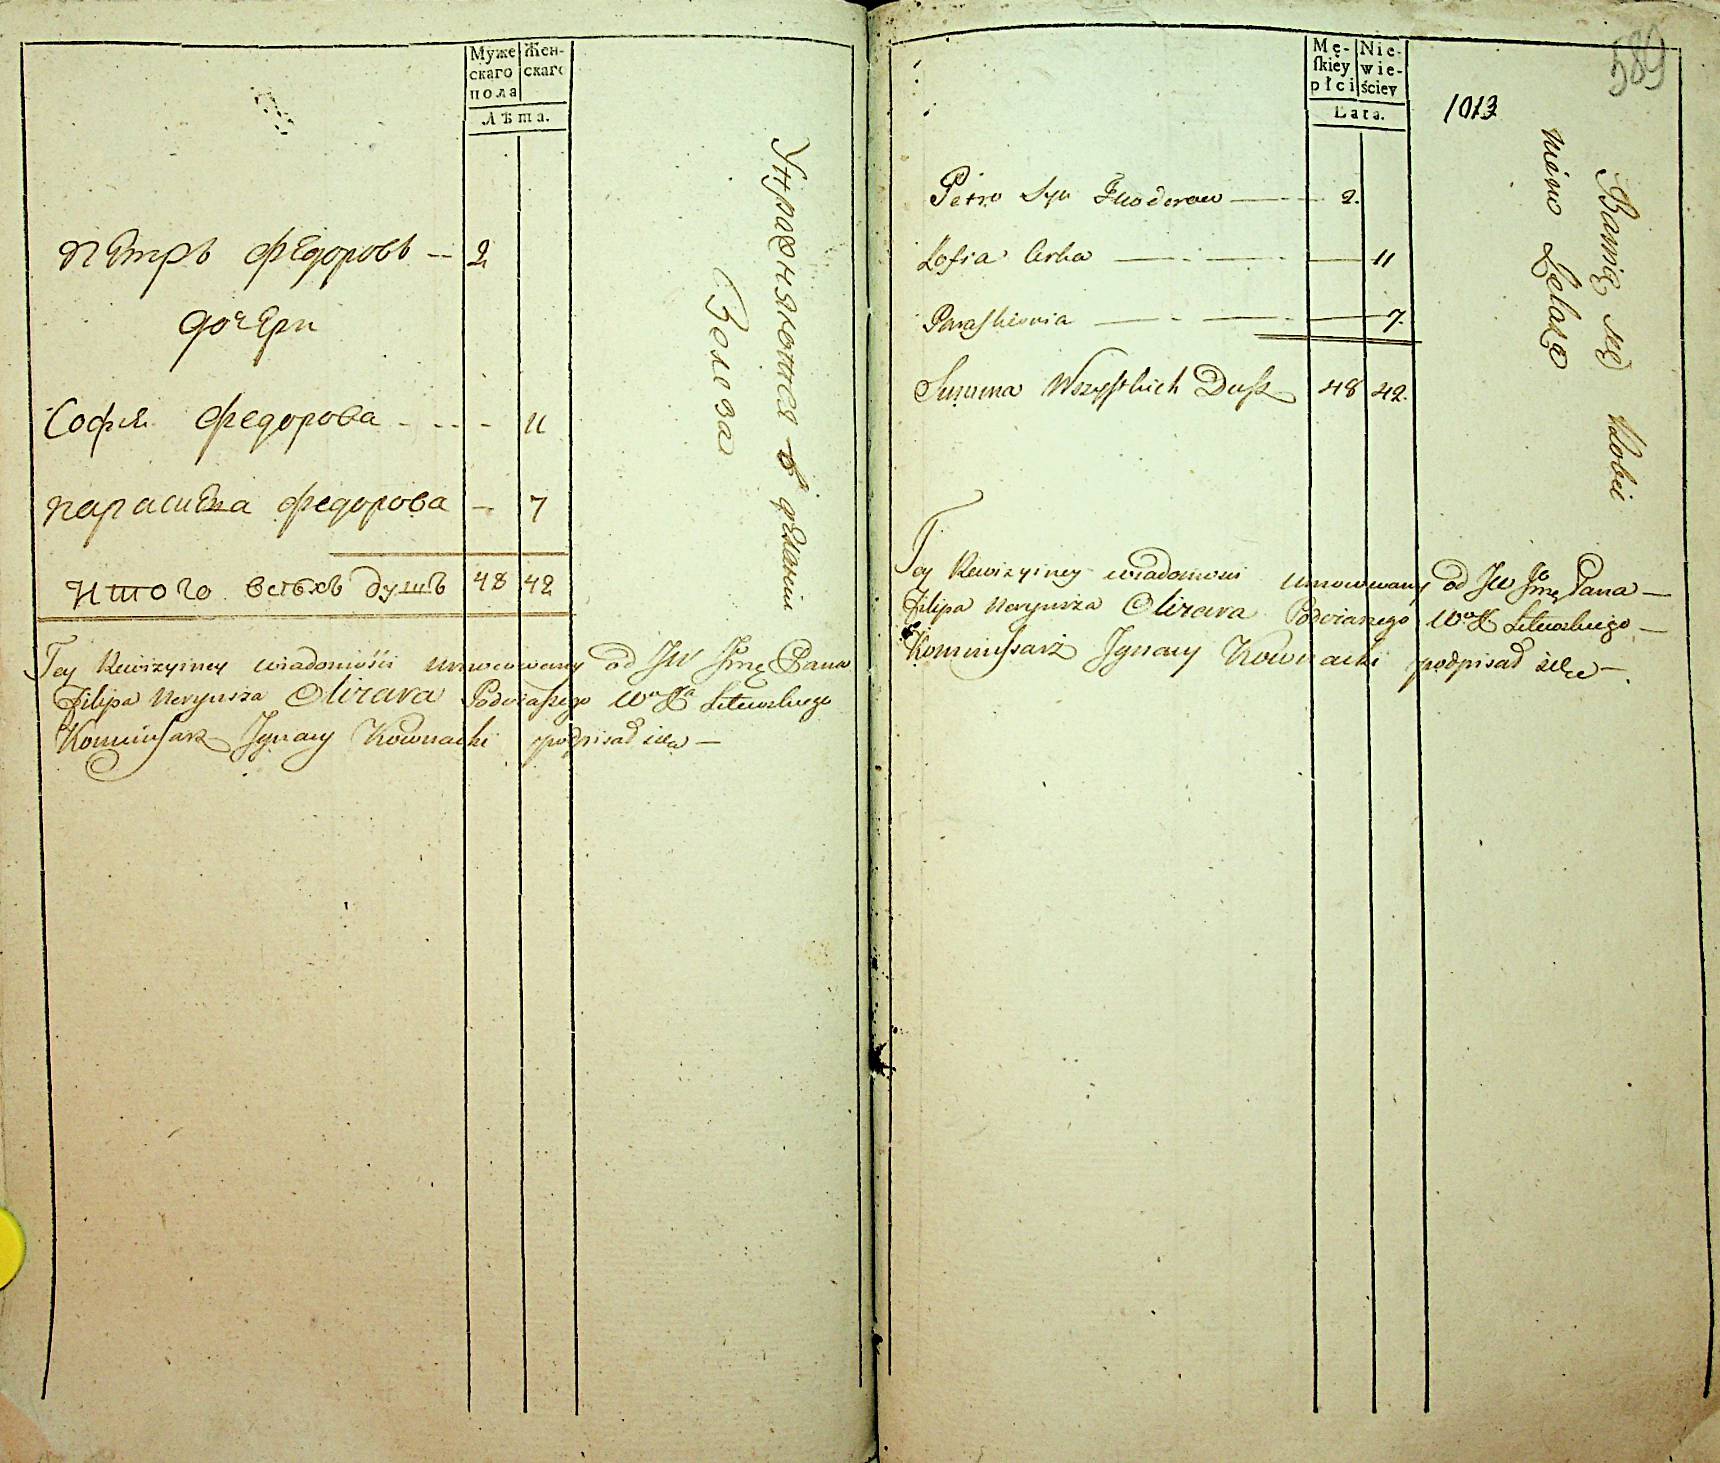 Муже Жен-
скаго скаго
пола
Лѣта.
Пётръ Федоровъ -- 2
дочери
Софія Федорова - - - - 11
Парасиева Федорова - 7
Итого всѣхъ душъ 48 42
Упражняются в деланіи
Зелеза
Tey Rewizyiney wiadomości umocowany od JW Jmę Pana
Filipa Neryusza Olizara Podczaszego WoXa Litewskiego
Kommissarz Jgnacy Kownacki podpisał się —
Mę- Nie-
skiey wie-
płci ściey
Lata.
589
1013
Petro Syn Fuodorow — 2.
Zofia Corka — 11
Paraskiewia — 7.
Summa Wszystkich Dusz 48 42.
Bawię się Robie
niem Zelaza
Tey Rewizyiney wiadomosci umocowany od JW Jmę Pana —
Filipa Neryusza Olizara Podczaszego WoX Litewskiego —
Kommissarz Jgnacy Kownacki podpisał się —.